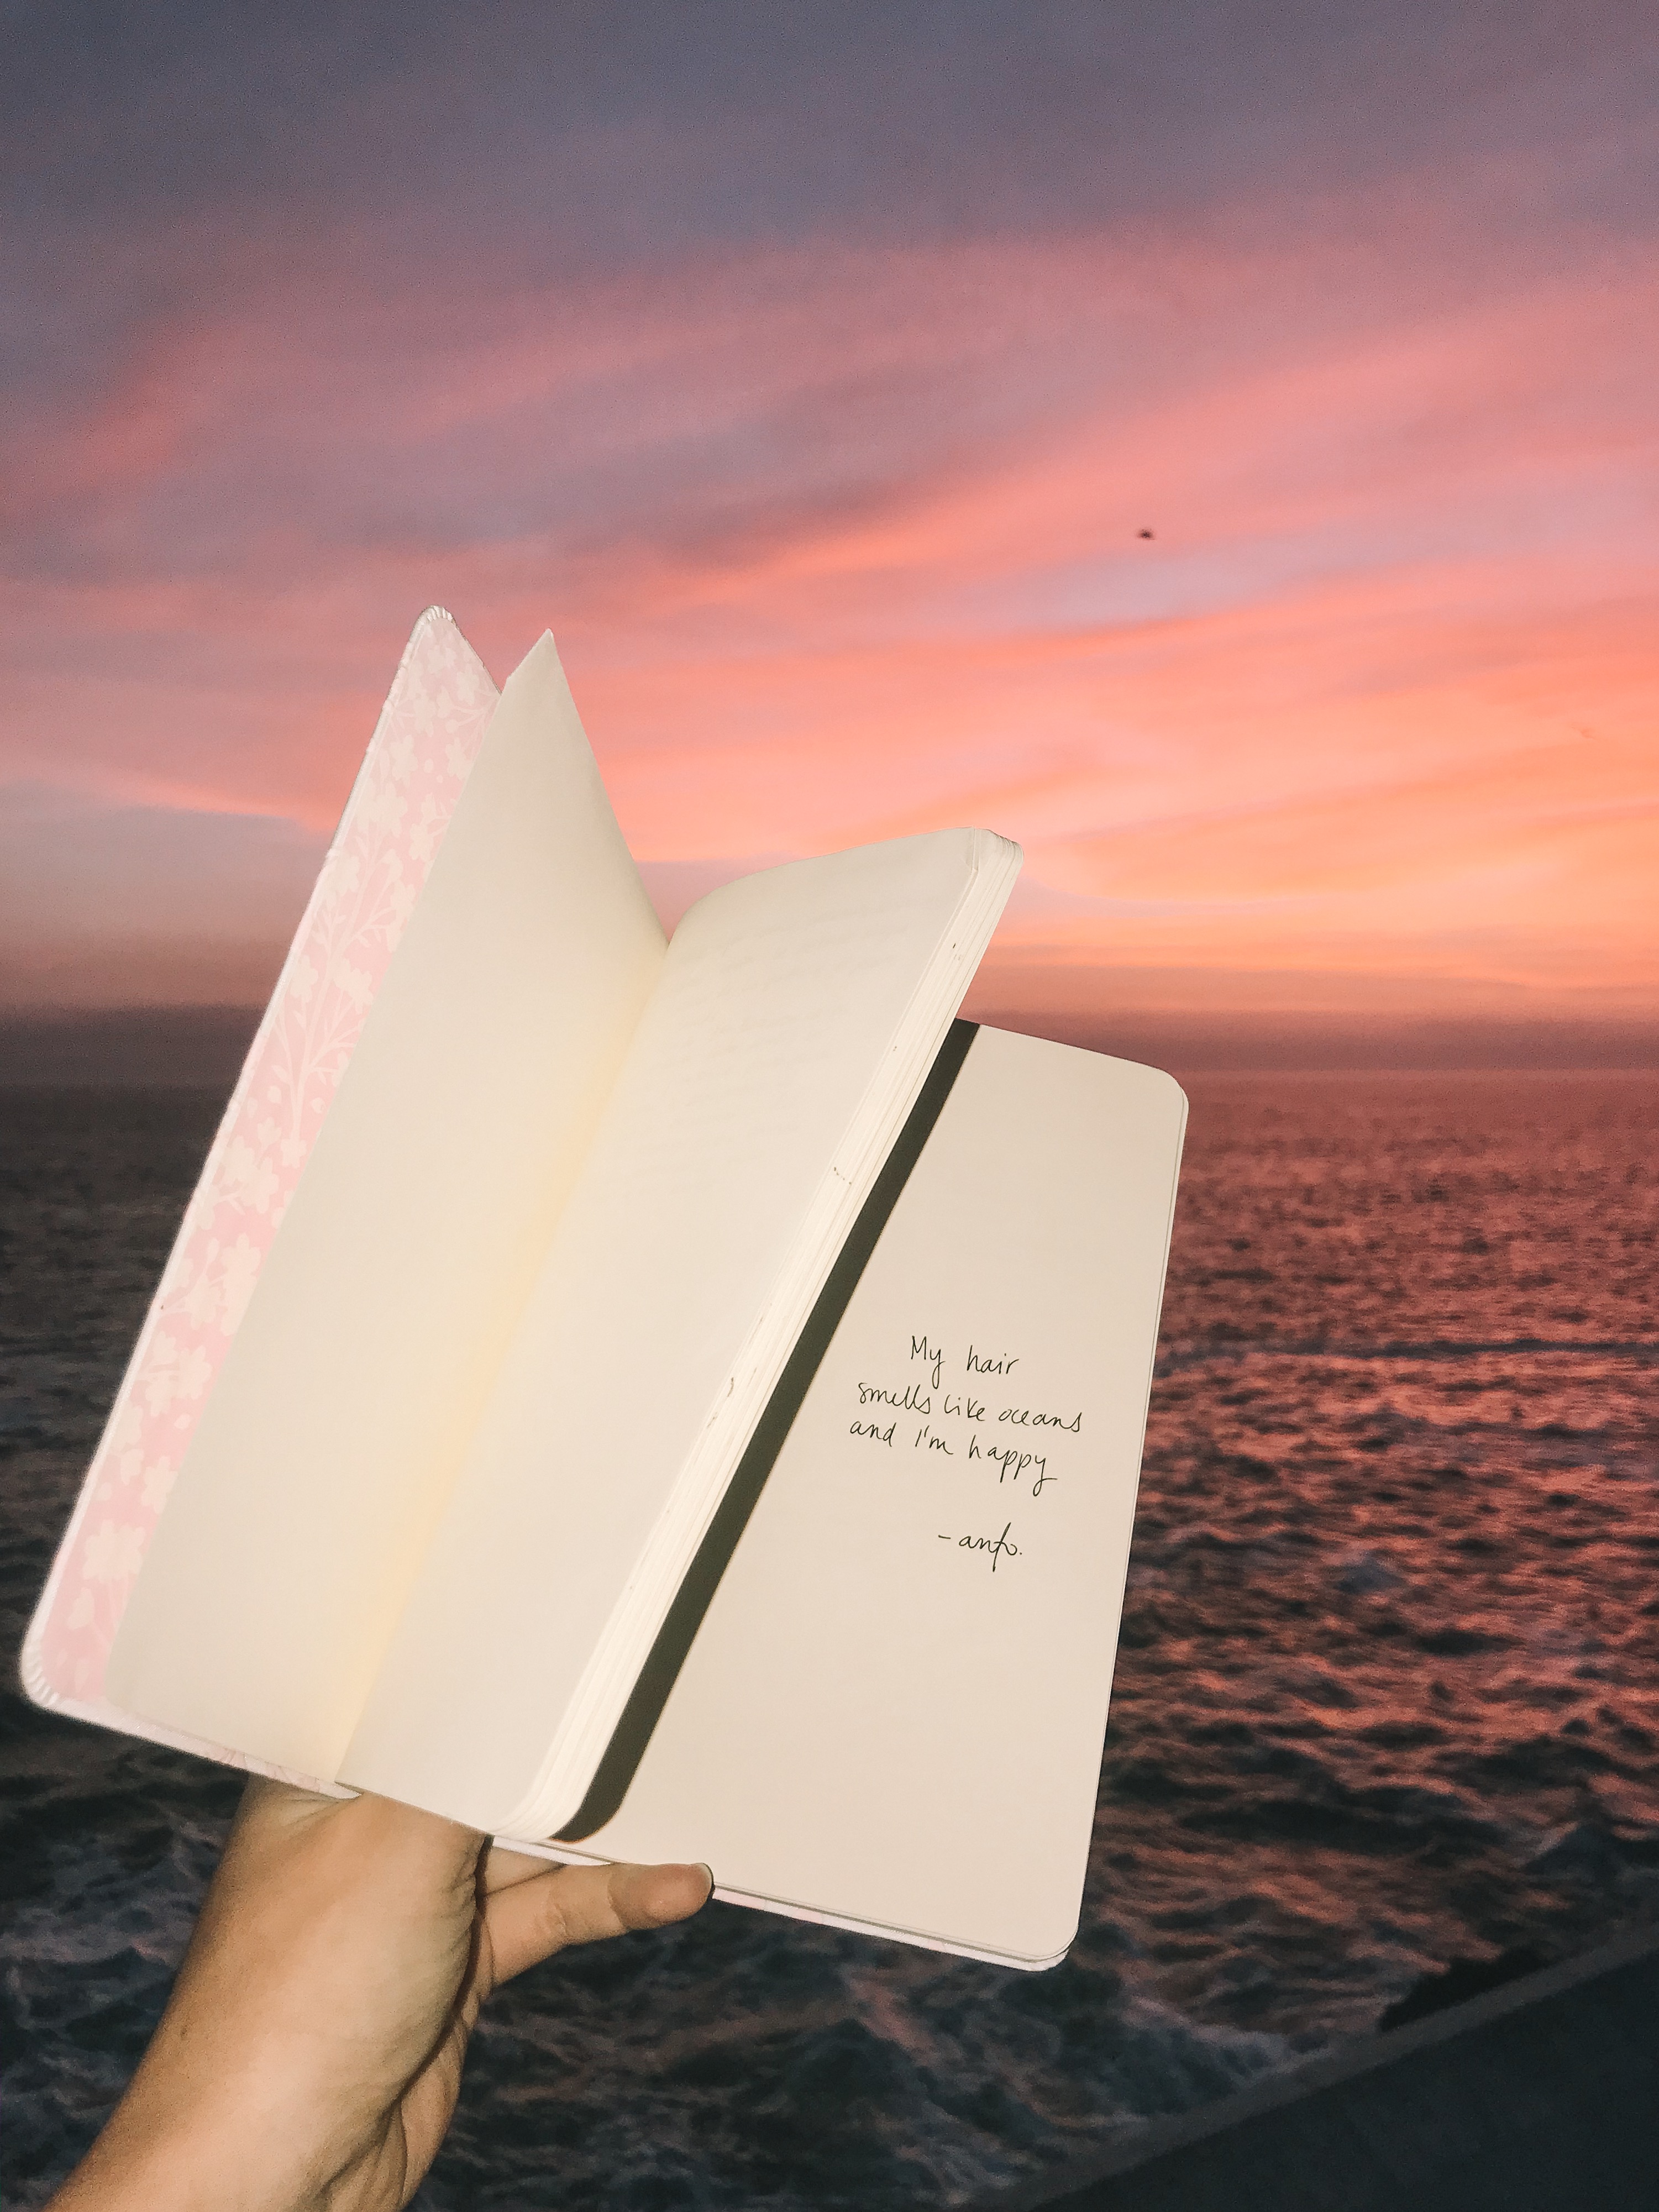 My hair
smells like oceans
and I'm happy
- anfo.